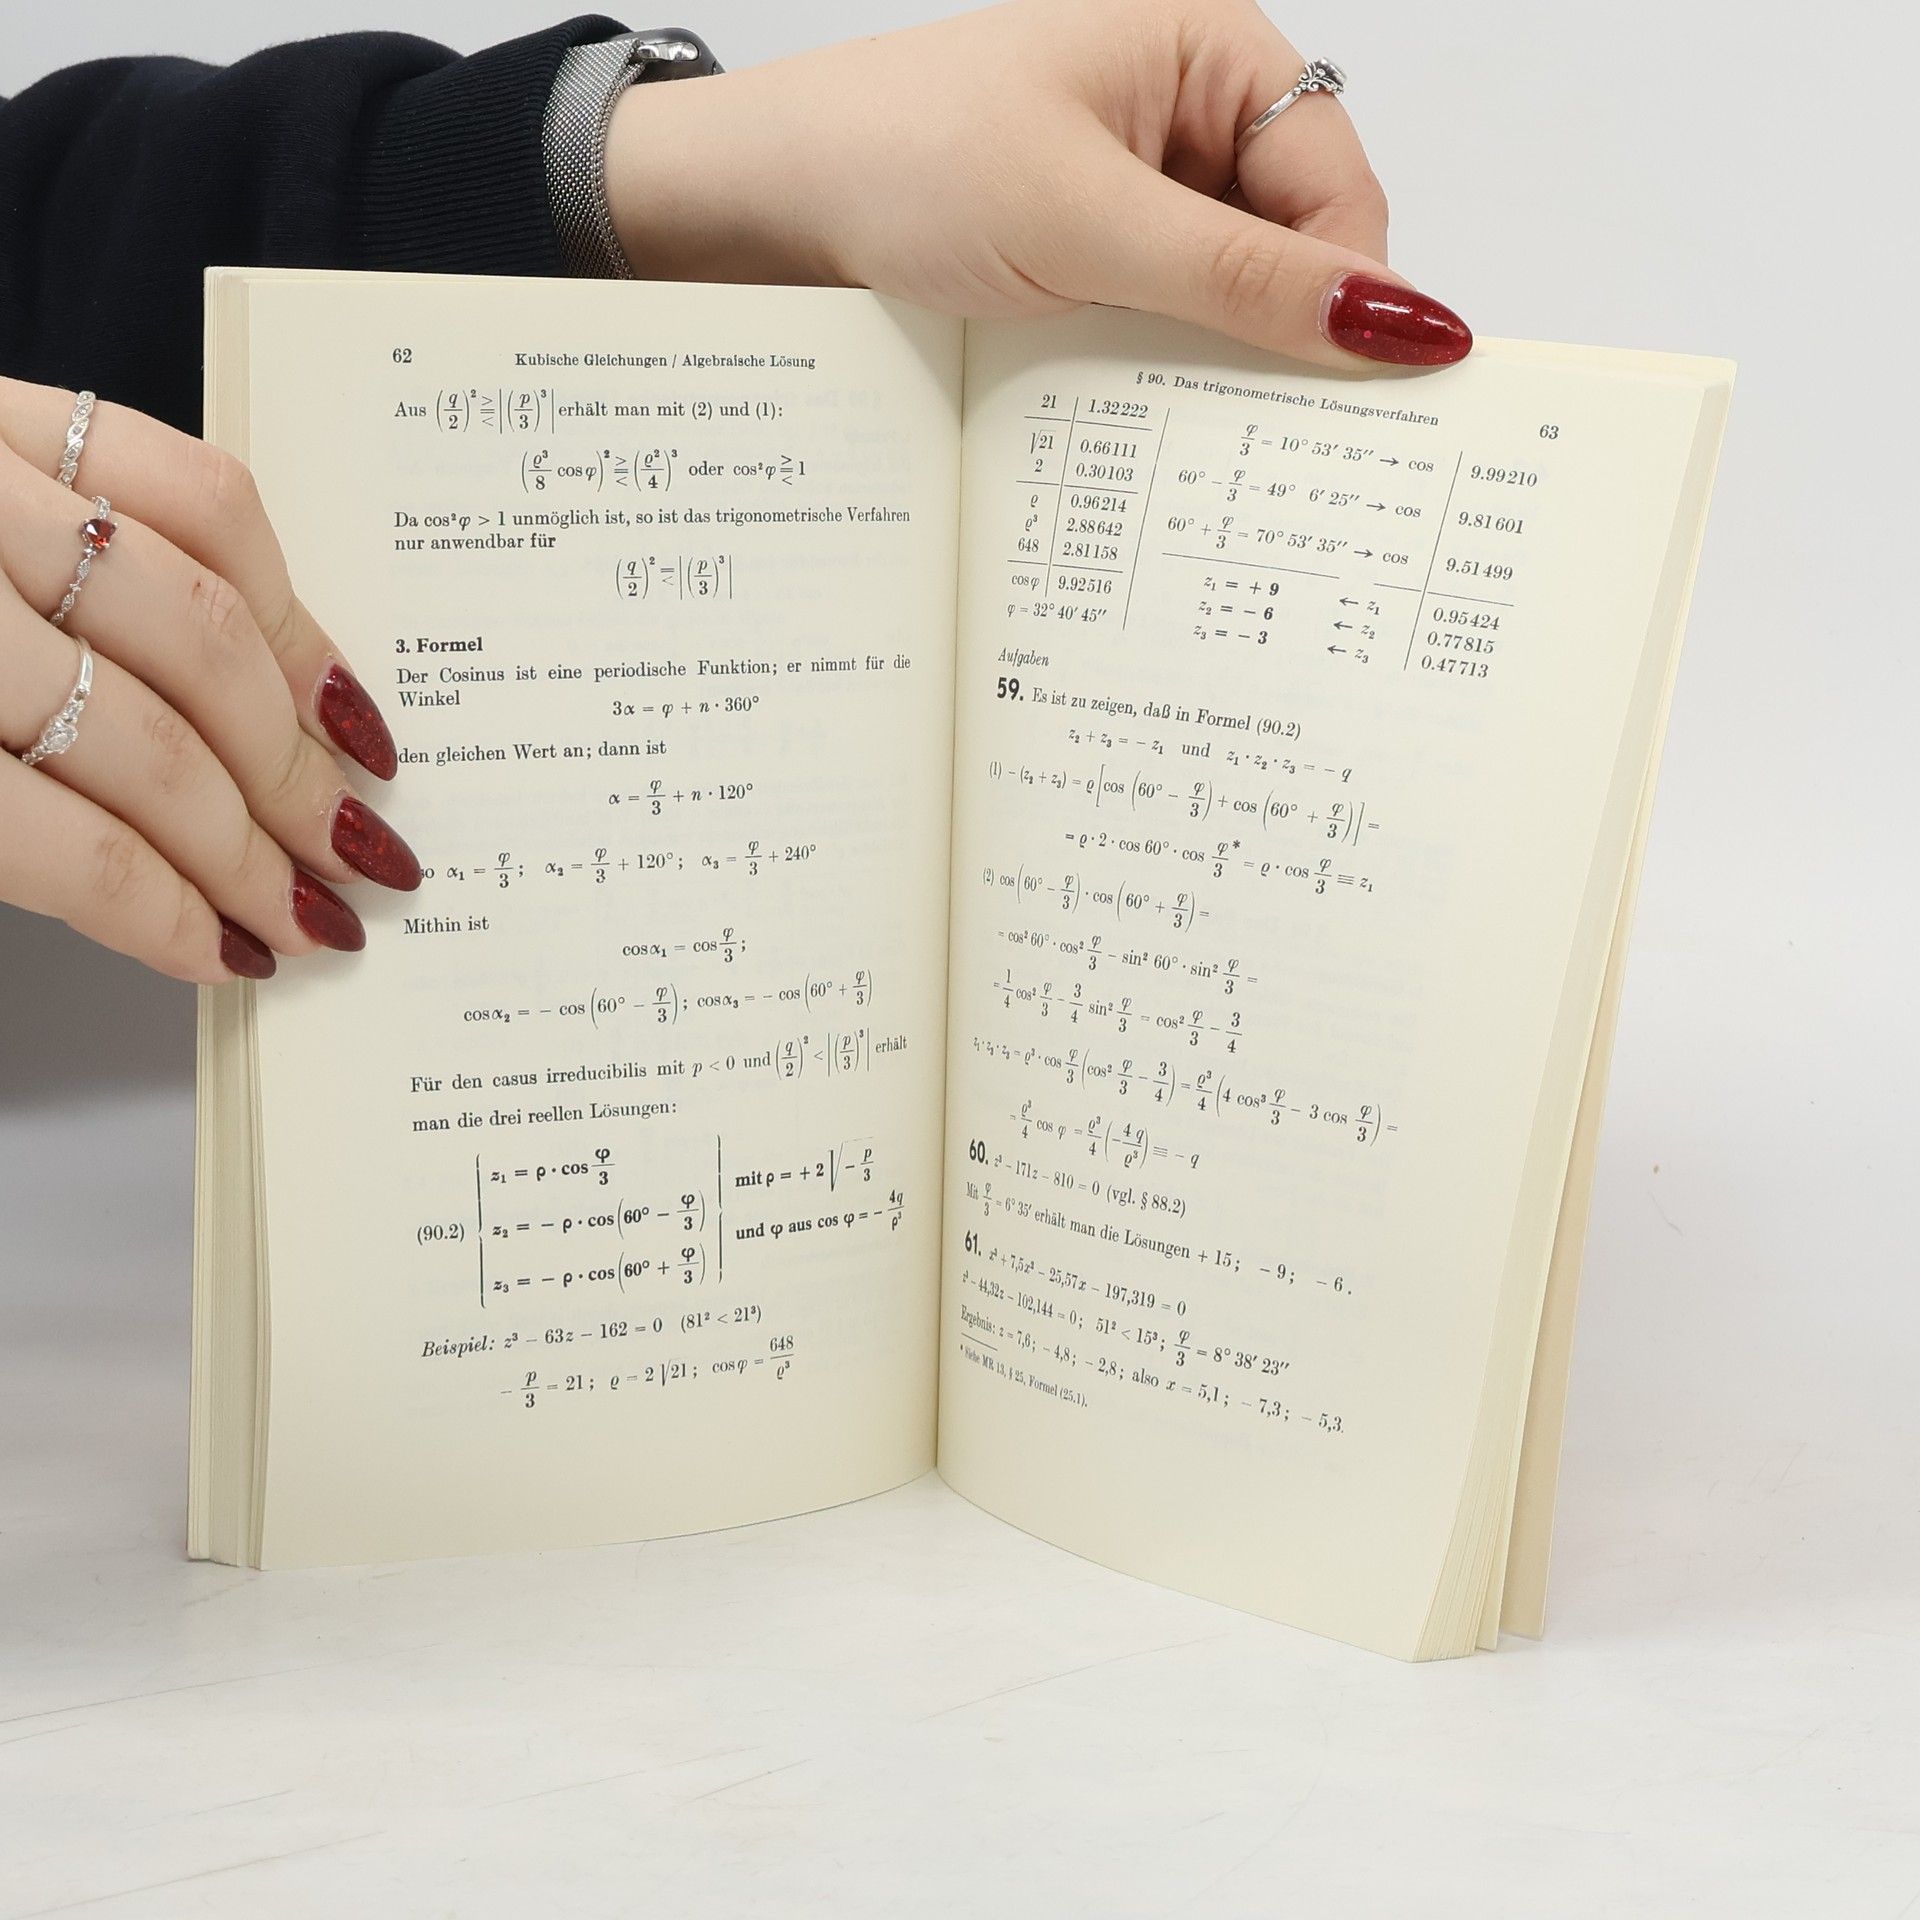 62 Kubische Gleichungen / Algebraische Lösung
Aus (q/2)² ≧< |(p/3)³| erhält man mit (2) und (1):
(ϱ³/8 cos φ)² ≧< (ϱ²/4)³ oder cos² φ ≧< 1
Da cos² φ > 1 unmöglich ist, so ist das trigonometrische Verfahren
nur anwendbar für
(q/2)² =< |(p/3)³|
3. Formel
Der Cosinus ist eine periodische Funktion; er nimmt für die
Winkel
3α = φ + n · 360°
den gleichen Wert an; dann ist
α = φ/3 + n · 120°
so α₁ = φ/3; α₂ = φ/3 + 120°; α₃ = φ/3 + 240°
Mithin ist
cos α₁ = cos φ/3;
cos α₂ = − cos (60° − φ/3); cos α₃ = − cos (60° + φ/3)
Für den casus irreducibilis mit p < 0 und (q/2)² < |(p/3)³| erhält
man die drei reellen Lösungen:
z₁ = ρ · cos φ/3
mit ρ = + 2 √−p/3
(90.2) z₂ = − ρ · cos (60° − φ/3)
und φ aus cos φ = − 4q/ρ³
z₃ = − ρ · cos (60° + φ/3)
Beispiel: z³ − 63z − 162 = 0 (81² < 21³)
− p/3 = 21; ϱ = 2 √21; cos φ = 648/ϱ³
§ 90. Das trigonometrische Lösungsverfahren 63
21 | 1.32222
√21 | 0.66111
2 | 0.30103
ϱ | 0.96214
ϱ³ | 2.88642
648 | 2.81158
cos φ | 9.92516
φ = 32° 40′ 45″
φ/3 = 10° 53′ 35″ → cos | 9.99210
60° − φ/3 = 49° 6′ 25″ → cos | 9.81601
60° + φ/3 = 70° 53′ 35″ → cos | 9.51499
z₁ = + 9 ← z₁ | 0.95424
z₂ = − 6 ← z₂ | 0.77815
z₃ = − 3 ← z₃ | 0.47713
Aufgaben
59. Es ist zu zeigen, daß in Formel (90.2)
z₂ + z₃ = − z₁ und z₁ · z₂ · z₃ = − q
(1) − (z₂ + z₃) = ϱ [cos (60° − φ/3) + cos (60° + φ/3)] =
= ϱ · 2 · cos 60° · cos φ/3 * = ϱ · cos φ/3 ≡ z₁
(2) cos (60° − φ/3) · cos (60° + φ/3) =
= cos² 60° · cos² φ/3 − sin² 60° · sin² φ/3 =
= 1/4 cos² φ/3 − 3/4 sin² φ/3 = cos² φ/3 − 3/4
z₁ · z₂ · z₃ = ϱ³ · cos φ/3 (cos² φ/3 − 3/4) = ϱ³/4 (4 cos³ φ/3 − 3 cos φ/3) =
= ϱ³/4 cos φ = ϱ³/4 (− 4q/ϱ³) ≡ − q
60. z³ − 171z − 810 = 0 (vgl. § 88.2)
Mit φ/3 = 6° 35′ erhält man die Lösungen + 15; − 9; − 6.
61. x³ + 7,5x² − 25,57x − 197,319 = 0
z³ − 44,32z − 102,144 = 0; 51² < 15³; φ/3 = 8° 38′ 23″
Ergebnis: z = 7,6; − 4,8; − 2,8; also x = 5,1; − 7,3; − 5,3.
* Siehe MR 13, § 25, Formel (25.1).